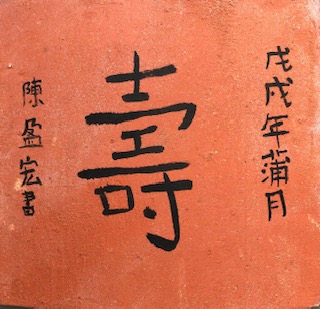 戊戌年蒲月
壽
陳盈宏書